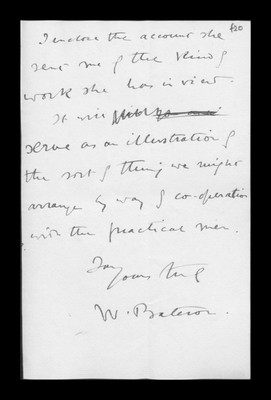 420
I enclose the account she
sent me of the kind of
work she has in view.
It will
serve as an illustration of
the sort of thing we might
arrange by way of co-operation
with the practical men.
I am
Yours truly
W. Bateson.